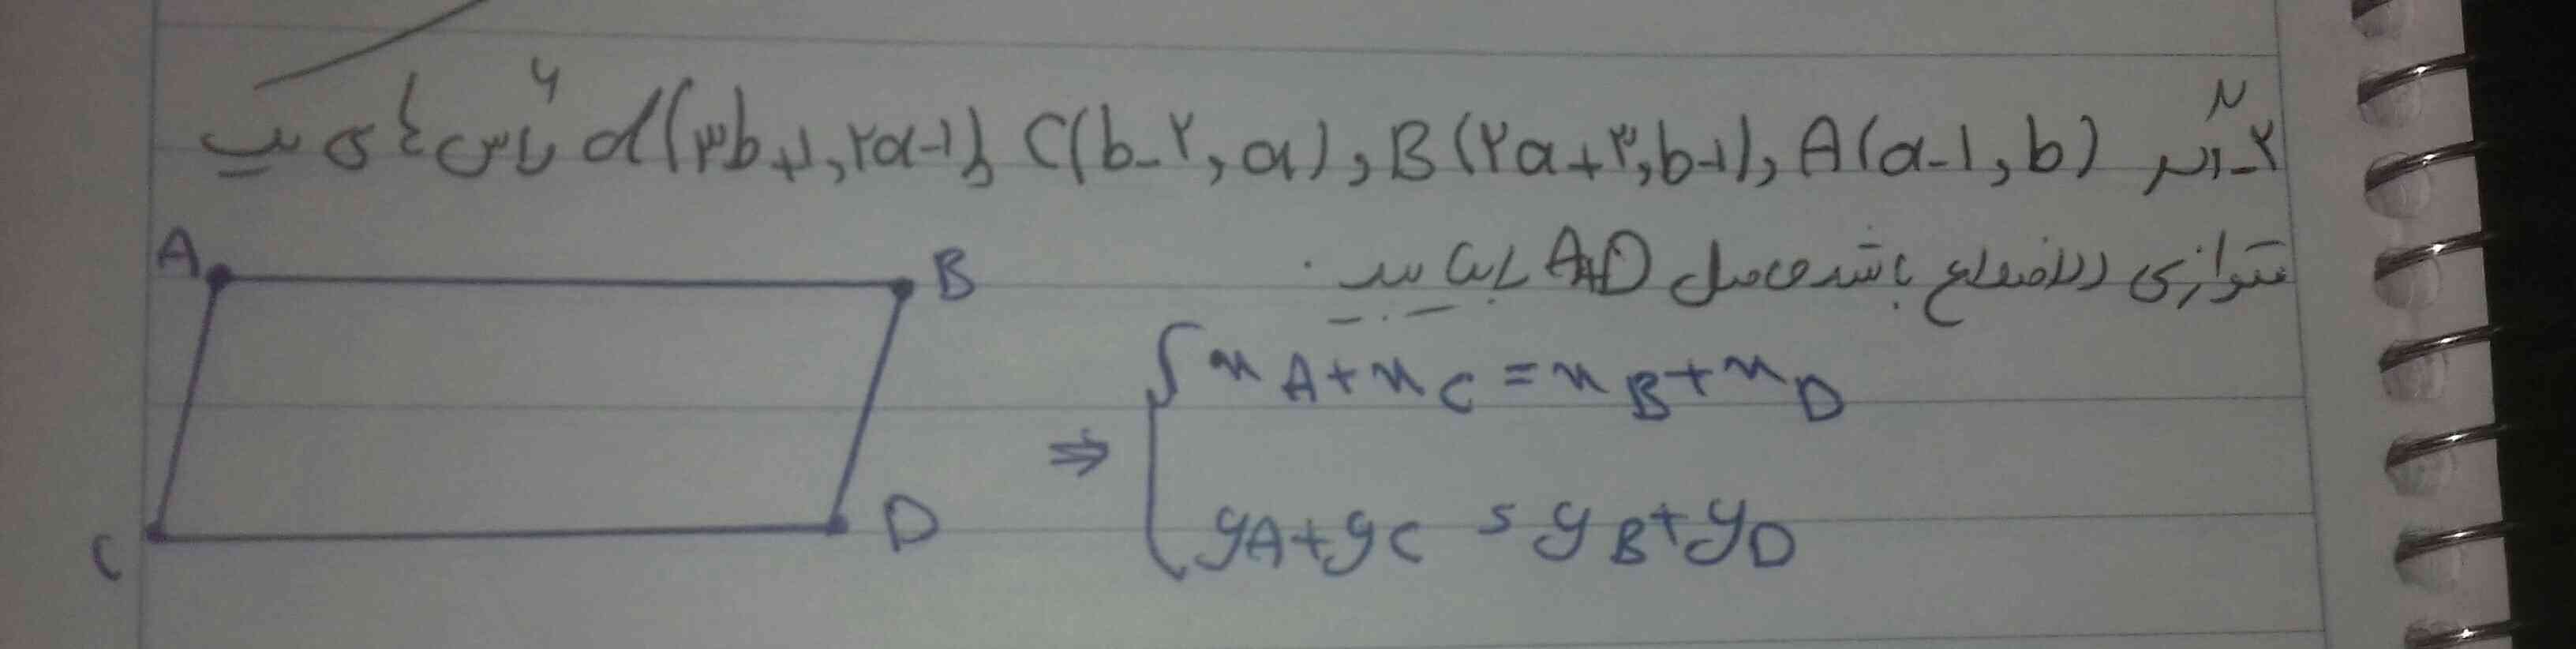 ۲- اگر A(a-1, b) , B(۲a+۳, b-1) , C(b-۲, a) و d(۳b+1, ۲a-1) رأس های یک
متوازی الاضلاع باشد حاصل A+D را بیابید.
A
B
{ x A + x C = x B + x D
⇒
y A + y C = y B + y D
C
D